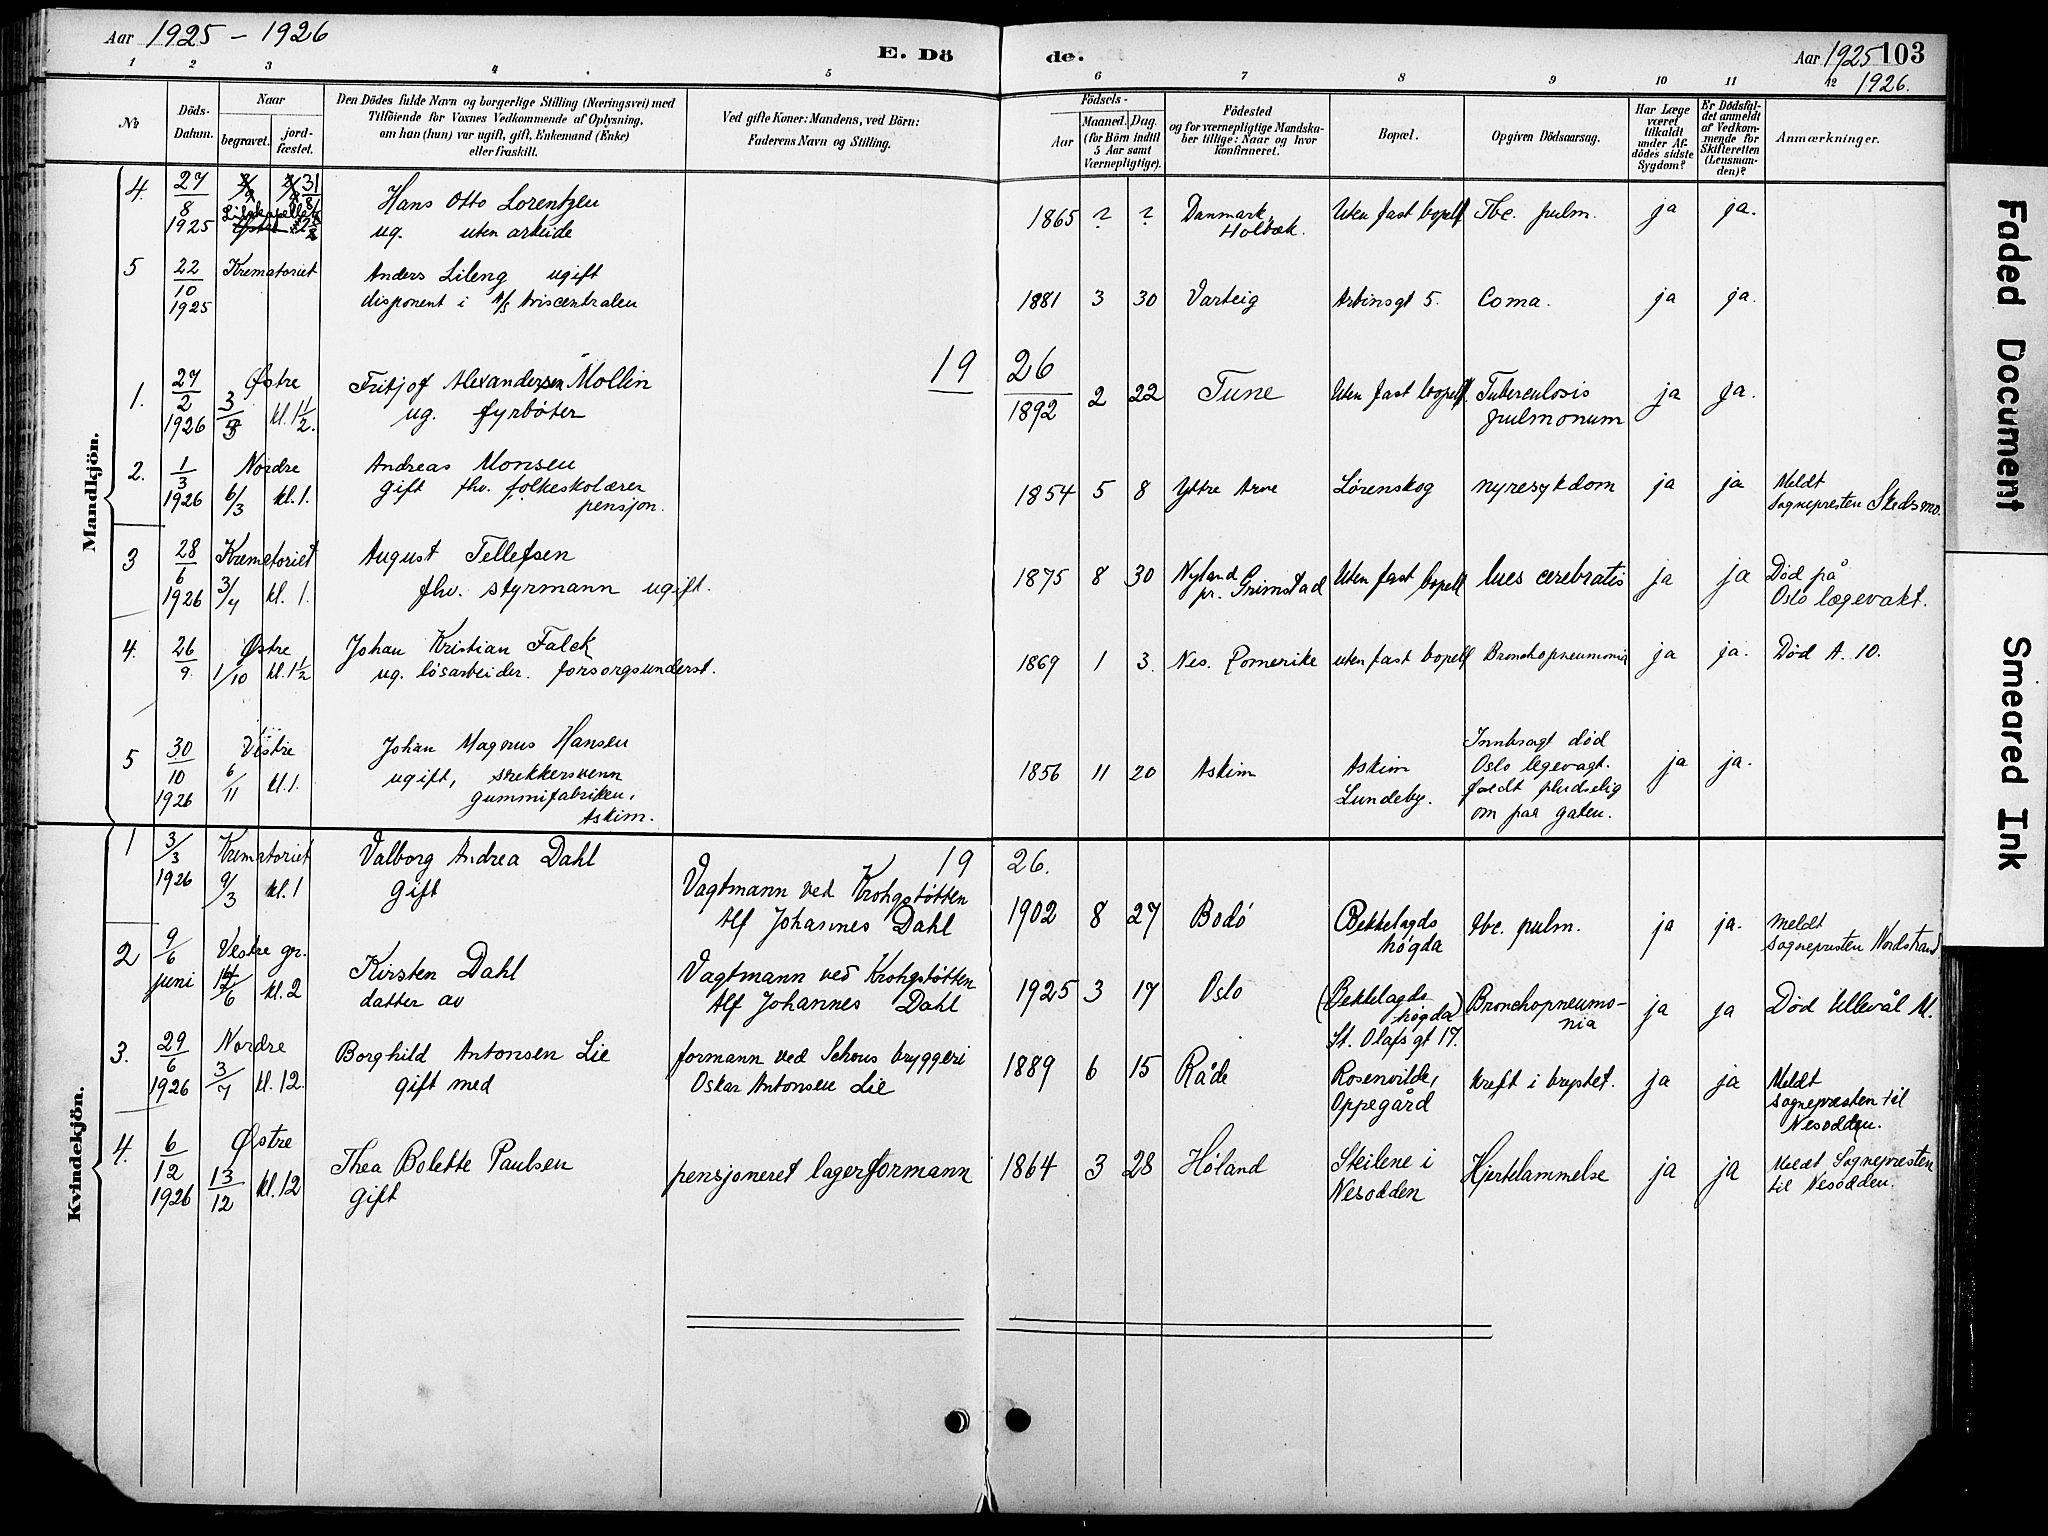 Aar 1925 - 1926
E. Dö
de.
Aar 1925 103
1926.
1 2 3 4 5 6 7 8 9 10 11 12
No
Döds-
Datum.
Naar
begravet.
jord-
fæstet.
Den Dödes fulde Navn og borgerlige Stilling (Næringsvei) med
Tilföiende for Voxnes Vedkommende af Oplysning,
om han (hun) var ugift, gift, Enkemand (Enke)
eller fraskilt.
Ved gifte Koner: Mandens, ved Börn:
Faderens Navn og Stilling.
Födsels-
Aar
Maaned. Dag.
(for Börn indtil
5 Aar samt
Værnepligtige).
Födested
og for værnepligtige Mandska-
ber tillige: Naar og hvor
konfirmeret.
Bopæl.
Opgiven Dödsaarsag.
Har Læge
været
tilkaldt
under Af-
dödes sidste
Sygdom?
Er Dödsfal-
det anmeldt
af Vedkom-
mende for
Skifteretten
(Lensman-
den)?
Anmærkninger.
Mandkjön.
4. 27/8 1925 31/8
Hans Otto Lorentzen
ug. uten arbeide
1865 ? ? Danmark, Holbæk. Uten fast bopel Tbc. pulm. ja ja.
5 22/10 1925 Krematoriet
Anders Lileng ugift
disponent i A/S Aviscentralen
1881 3 30 Varteig Arbinsgt 5. Coma. ja ja.
19 26
1. 27/2 1926 Østre 3/3 kl. 1 1/2.
Fritjof Alexandersen Mollin
ug. fyrbøter
1892 2 22 Tune Uten fast bopel Tuberculosis pulmonum ja ja.
2. 1/3 1926 Nordre 6/3 kl. 1.
Andreas Monsen
gift fhv. folkeskolærer
pensjon.
1854 5 8 Yttre Arne Lørenskog nyresykdom ja ja Meldt
Sognepresten Skedsmo.
3 28/6 1926 Krematoriet 3/7 kl. 1.
August Tellefsen
fhv. styrmann ugift.
1875 8 30 Nyland pr. Grimstad Uten fast bopel lues cerebralis ja ja Død på
Oslo lægevakt.
4. 26/9. Østre 1/10 kl. 1 1/2
Johan Kristian Falck
ug. løsarbeider. forsorgsunderst.
1869 1 3. Nes. Romerike uten fast bopel Bronchopneumonia ja ja. Død A. 10.
5 30/10 1926 Vestre 6/11 kl. 1.
Johan Magnus Hansen
ugift,
gummifabriken,
Askim.
1856 11 20 Askim Askim
Lundeby. Innbragt død
Oslo legevagt.
faldt pludselig
om paa gaten. ja ja.
Kvindekjön.
19 26.
1 3/3 1926 Krematoriet 9/3 kl. 1
Valborg Andrea Dahl
Gift
Vagtmann ved Krohgstøtten
Alf Johannes Dahl
1902 8 27 Bodó Bekkelagds
høgda tbc. pulm. ja ja. Meldt
sognepresten Nordstrand
2 9/6 juni Vestre gr. 12/6 kl. 2
Kirsten Dahl
datter av
Vagtmann ved Krohgstøtten
Alf Johannes Dahl
1925 3 17 Oslo (Bekkelagds
høgda)
St. Olafs gt 17. Bronchopneumo-
nia ja ja Død Ullevål M.
3. 29/6 1926 Nordre 3/7 kl. 12.
Borghild Antonsen Lie
gift med
formann ved Schous bryggeri
Oskar Antonsen Lie
1889 6 15 Råde Rosenvilde,
Oppegård Kreft i brystet. ja ja Meldt
sognepresten til
Nesodden.
4. 6/12 1926 Østre 13/12 kl. 12
Thea Bolette Paulsen
gift
pensjoneret lagerformann
1864 3 28 Høland Steilene i
Nesodden Hjertelammelse ja ja Meldt Sognepresten
til Nesodden.
Faded Document
Smeared Ink